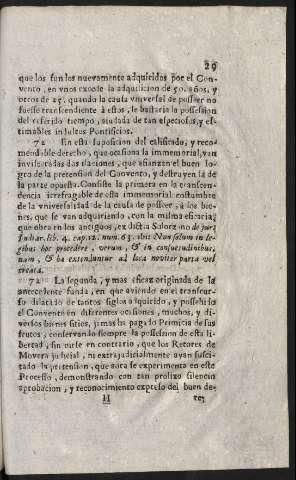 29
que los fundos nuevamente adquiridos por el Con-
vento, en vnos excede la adquisicion de 50. años, y
otros de 25. quando la causa vniversal de posseer no
fuesse transcendiente à estos, le bastaria la possession
del referido tiempo, aiudada de tan especiosas, y es-
timables indultos Pontificios.
72 En esta suposicion del calificado, y reco-
mendable derecho, que ocasiona la immemorial, van
involucradas dos ilaciones, que afianzan el buen lo-
gro de la pretension del Convento, y destruyen la de
la parte opuesta. Consiste la primera en la transcen-
dencia irrefragable de esta immemorial costumbre
de la vniversalidad de la causa de posseer, à los bie-
nes, que se van adquiriendo, con la misma eficacia,
que obra en los antiguos, ex dictis Solorz. no de jure
Indiar. lib. 4. cap. 12. num. 63. ibi: Non solum in le-
gibus hoc procedere, verum, & in consuetudinibus,
nam, & ha extenduntur ad loca noviter parta vel
creata.
72 La segunda, y mas eficaz originada de la
antecedente funda, en que aviendo en el transcur-
so dilatado de tantos siglos adquirido, y posseìdo
el Convento en diferentes ocasiones, muchos, y di-
versos bienes sitios, jamàs ha pagado Primicia de sus
frutos, conservando siempre la possession de esta li-
bertad, sin oirse en contrario, que los Retores de
Movera judicial, ni extrajudicialmente ayan susci-
tado la pretension, que aora se experimenta en este
Processo, demonstrando con tan prolixo silencio
aprobacion, y reconocimiento expreso del buen de-
H rey